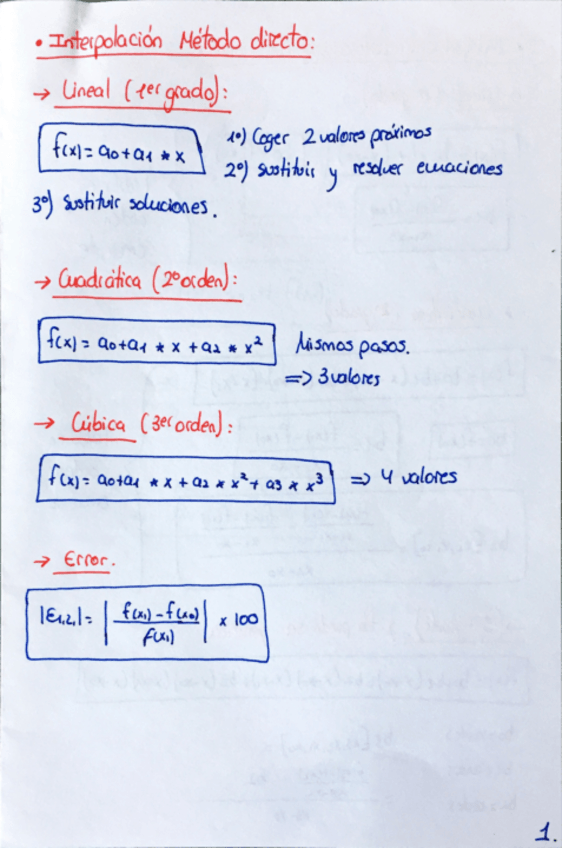 • Interpolación Método directo:
→ Lineal (1er grado):
f(x) = a0 + a1 * x
1º) Coger 2 valores próximos
2º) Sustituir y resolver ecuaciones
3º) Sustituir soluciones.
→ Cuadrática (2º orden):
f(x) = a0 + a1 * x + a2 * x²
Mismos pasos.
=> 3 valores
→ Cúbica (3er orden):
f(x) = a0 + a1 * x + a2 * x² + a3 * x³ => 4 valores
→ Error.
|ε1,2,| = | f(x1) - f(x0) / f(x1) | x 100
1.